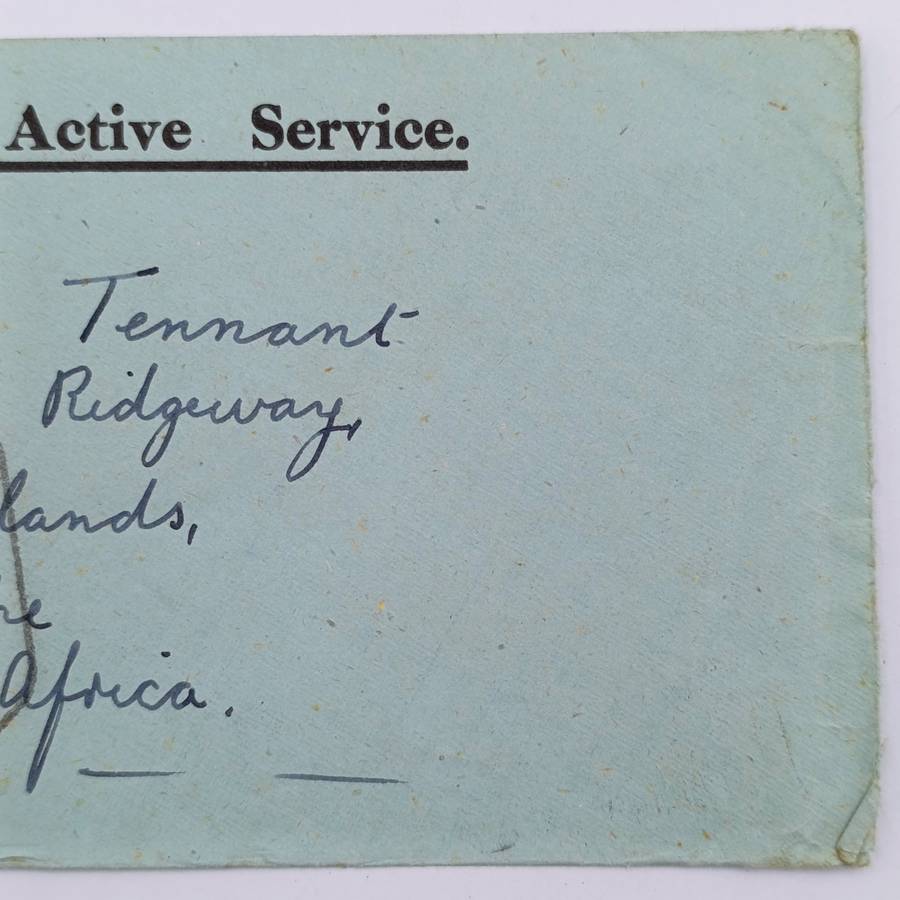 Active Service.
Tennant
Ridgeway,
lands,
Africa.